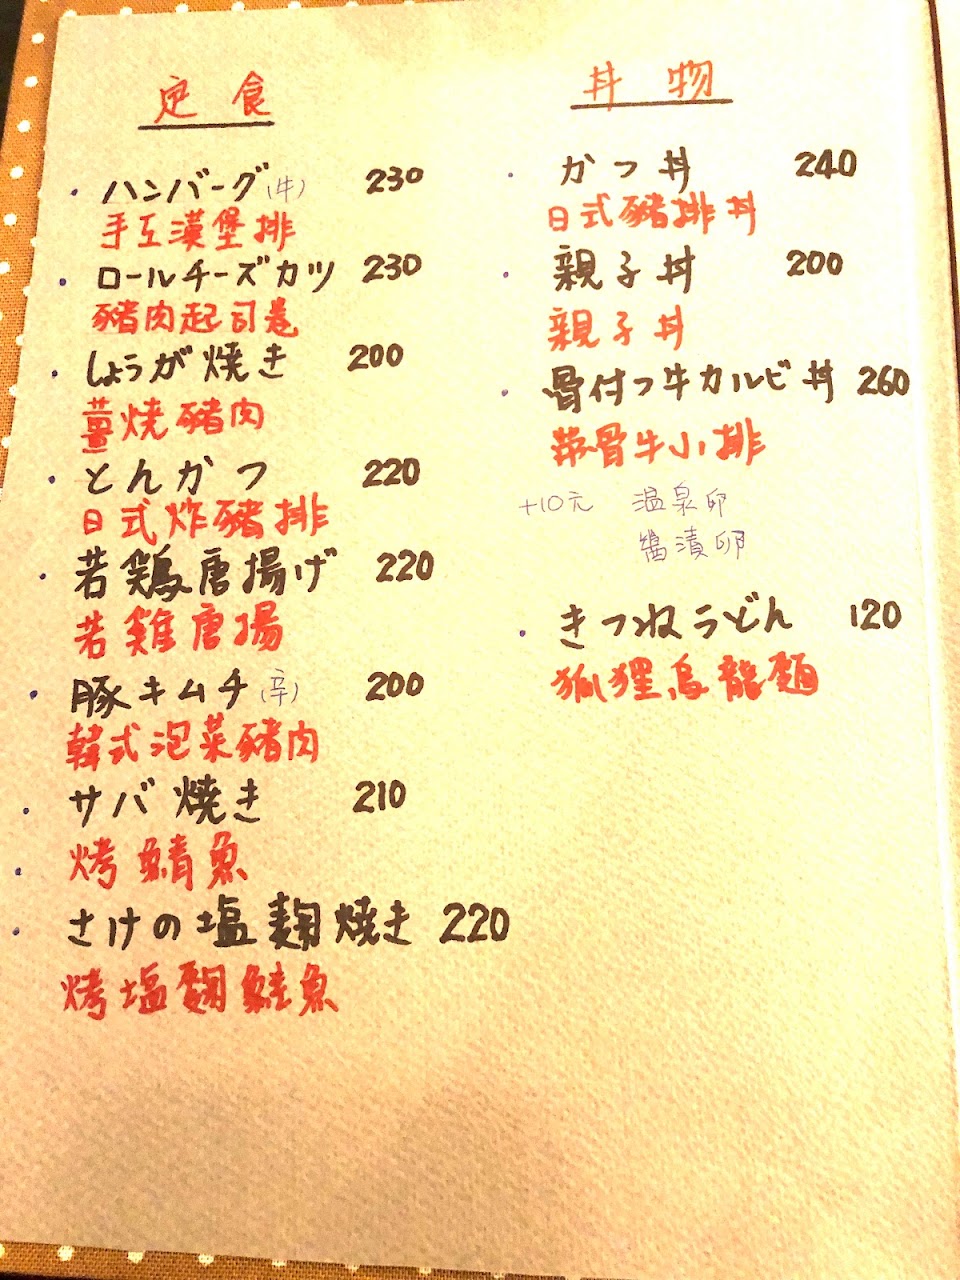 定食
ハンバーグ(牛) 230
手工漢堡排
ロールチーズカツ 230
豬肉起司卷
しょうが焼き 200
薑燒豬肉
とんかつ 220
日式炸豬排
若鶏唐揚げ 220
若雞唐揚
豚キムチ(辛) 200
韓式泡菜豬肉
サバ焼き 210
烤鯖魚
さけの塩麹焼き 220
烤塩麴鮭魚
丼物
かつ丼 240
日式豬排丼
親子丼 200
親子丼
骨付つ牛カルビ丼 260
帶骨牛小排
+10元 温泉卵
醬漬卵
きつねうどん 120
狐狸烏龍麵